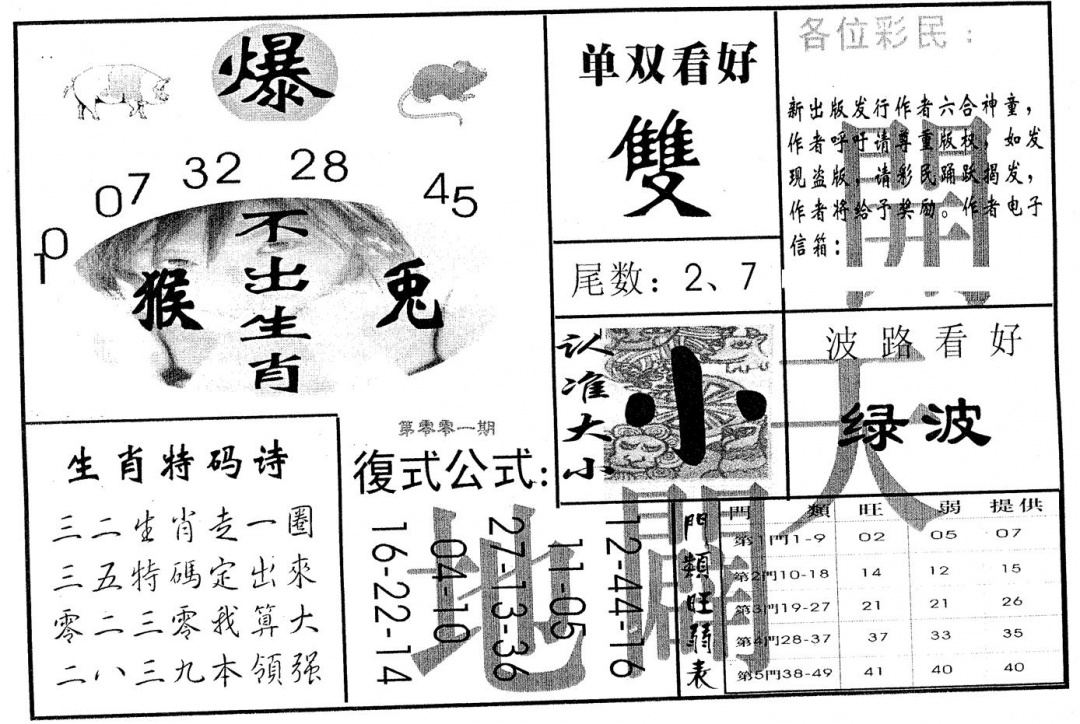 爆
10 07 32 28 45
不出生肖
猴
兔
单双看好
雙
尾数：2、7
认准大小
小
各位彩民：
新出版发行作者六合神童，
作者呼吁请尊重版权，如发
现盗版，请彩民踊跃揭发，
作者将给予奖励。作者电子
信箱：
波路看好
绿波
天開
地闢
生肖特码诗
三二生肖走一圈
三五特碼定出來
零二三零我算大
二八三九本領强
第零零一期
復式公式：
16-22-14
04-10
27-13-36
11-05
12-44-16
門類旺弱表
門類 旺 弱 提供
第1門1-9 02 05 07
第2門10-18 14 12 15
第3門19-27 21 21 26
第4門28-37 37 33 35
第5門38-49 41 40 40